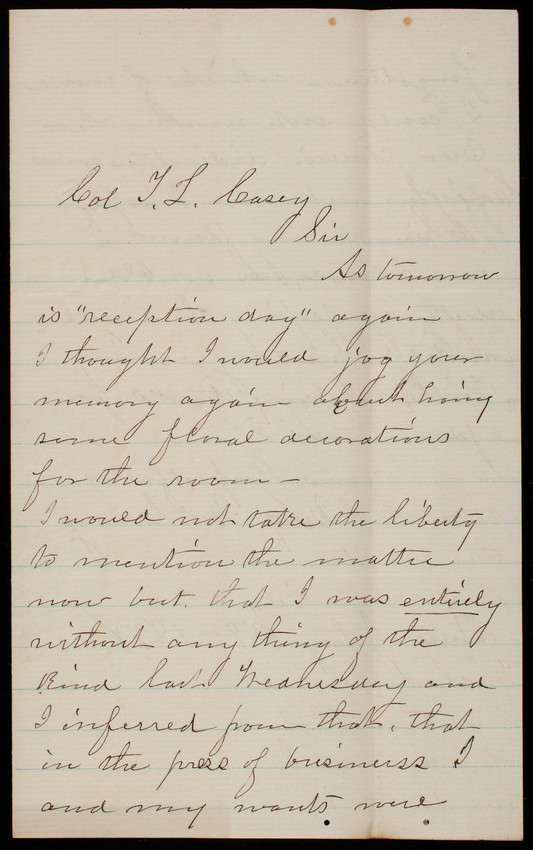 Col T. L. Casey
Sir
As tomorrow
is "reception day" again
I thought I would jog your
memory again about having
some floral decorations
for the room —
I would not take the liberty
to mention the matter
now but that I was entirely
without any thing of the
kind last Wednesday and
I inferred from that, that
in the press of business I
and my wants were